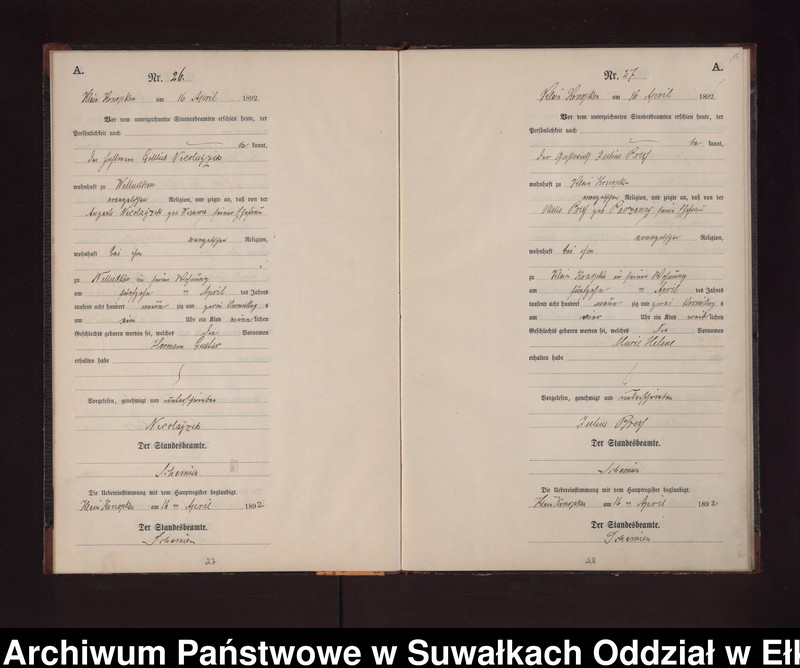 A.
Nr. 26.
Klein Konopken am 16 April 1892
Vor dem unterzeichneten Standesbeamten erschien heute, der
Persönlichkeit nach
be kannt,
der Gottlieb Nicolayzik
wohnhaft zu
evangelischer Religion, und zeigte an, daß von der
Auguste Nicolayzik geb. seiner Ehefrau
evangelischer Religion,
wohnhaft bei ihm
zu in seiner Wohnung
am fünfzehn ten April des Jahres
tausend acht hundert neun zig und zwei Vormittag s
um ein Uhr ein Kind männlichen
Geschlechts geboren worden sei, welches die Vornamen
Hermann Gustav
erhalten habe
Vorgelesen, genehmigt und unterschrieben
Nicolayzik
Der Standesbeamte.
Schemien
Die Uebereinstimmung mit dem Hauptregister beglaubigt.
Klein Konopken am 16 ten April 1892
Der Standesbeamte.
Schemien
27
A.
Nr. 27
Klein Konopken am 16 April 1892
Vor dem unterzeichneten Standesbeamten erschien heute, der
Persönlichkeit nach
be kannt,
der Julius
wohnhaft zu Klein Konopken
evangelischer Religion, und zeigte an, daß von der
geb. seiner Ehefrau
evangelischer Religion,
wohnhaft bei ihm
zu Klein Konopken in seiner Wohnung
am fünfzehn ten April des Jahres
tausend acht hundert neun zig und zwei Vormittag s
um vier Uhr ein Kind weiblichen
Geschlechts geboren worden sei, welches die Vornamen
Marie Helene
erhalten habe
Vorgelesen, genehmigt und unterschrieben
Julius
Der Standesbeamte.
Schemien
Die Uebereinstimmung mit dem Hauptregister beglaubigt.
Klein Konopken am 16 ten April 1892
Der Standesbeamte.
Schemien
28
Archiwum Państwowe w Suwałkach Oddział w Eł